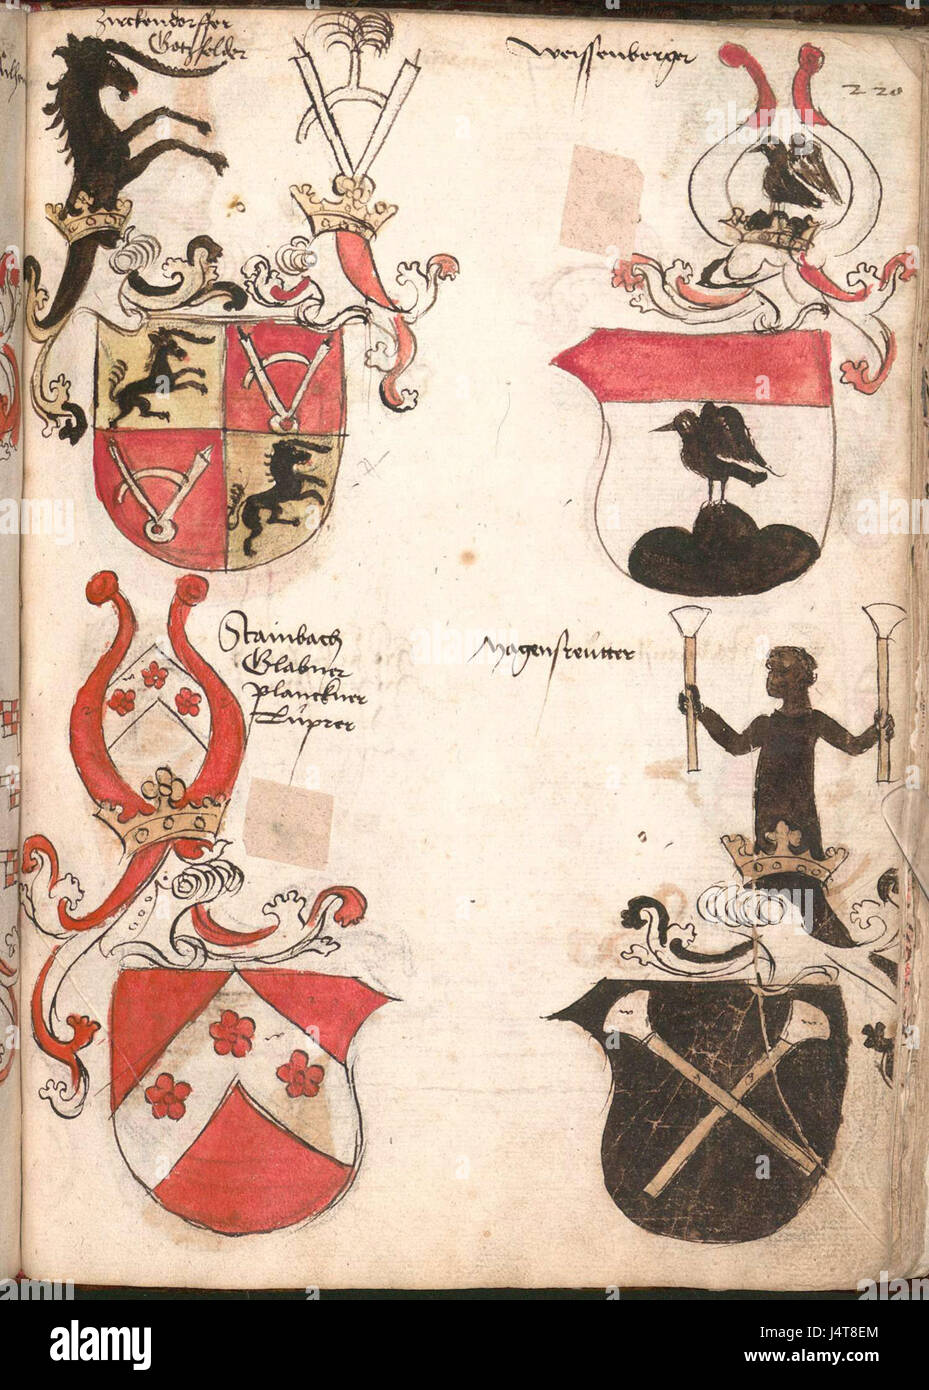 Zirckendorffer
Gotzfelder
Weissenberger
220
Stainbach
Glabner
Planckner
Hagensreutter
alamy
Image ID: J4T8EM
www.alamy.com